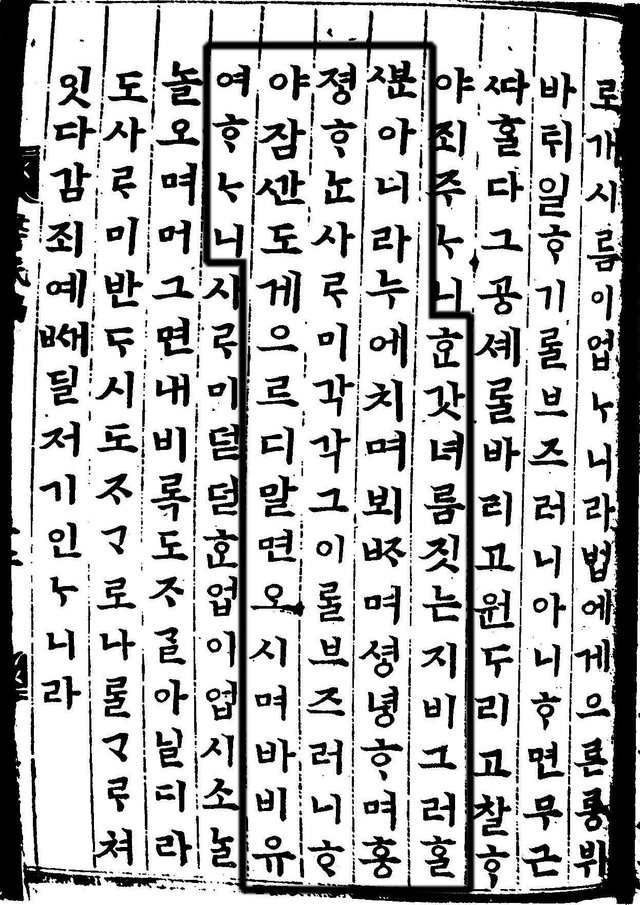 로개시름이업ᄂᆞ니라법에게으른롱뷔
바ᄐᆡ일ᄒᆞ기ᄅᆞᆯ브즈러니아니ᄒᆞ면무근
ᄯᅡ홀다그공셰ᄅᆞᆯ바리고원두리고찰ᄒᆞ
야죄주ᄂᆞ니ᄒᆞᆫ갓녀름짓는지비그러ᄒᆞᆯ
ᄲᅮᆫ아니라누에치며뵈ᄧᆞ며셩녕ᄒᆞ며흥
졍ᄒᆞᄂᆞᆫ사ᄅᆞ미각각그이ᄅᆞᆯ브즈러니ᄒᆞ
야잠ᄭᅡᆫ도게으르디말면오시며바비유
여ᄒᆞᄂᆞ니사ᄅᆞ미덜덜ᄒᆞᆫ업이업시소놀
놀오며머그면내비록도ᄌᆞ글아닐디라
도사ᄅᆞ미반ᄃᆞ시도ᄌᆞᄀᆞ로나ᄅᆞᆯᄀᆞᄅᆞ쳐
잇다감죄예ᄲᅢ딜저기인ᄂᆞ니라